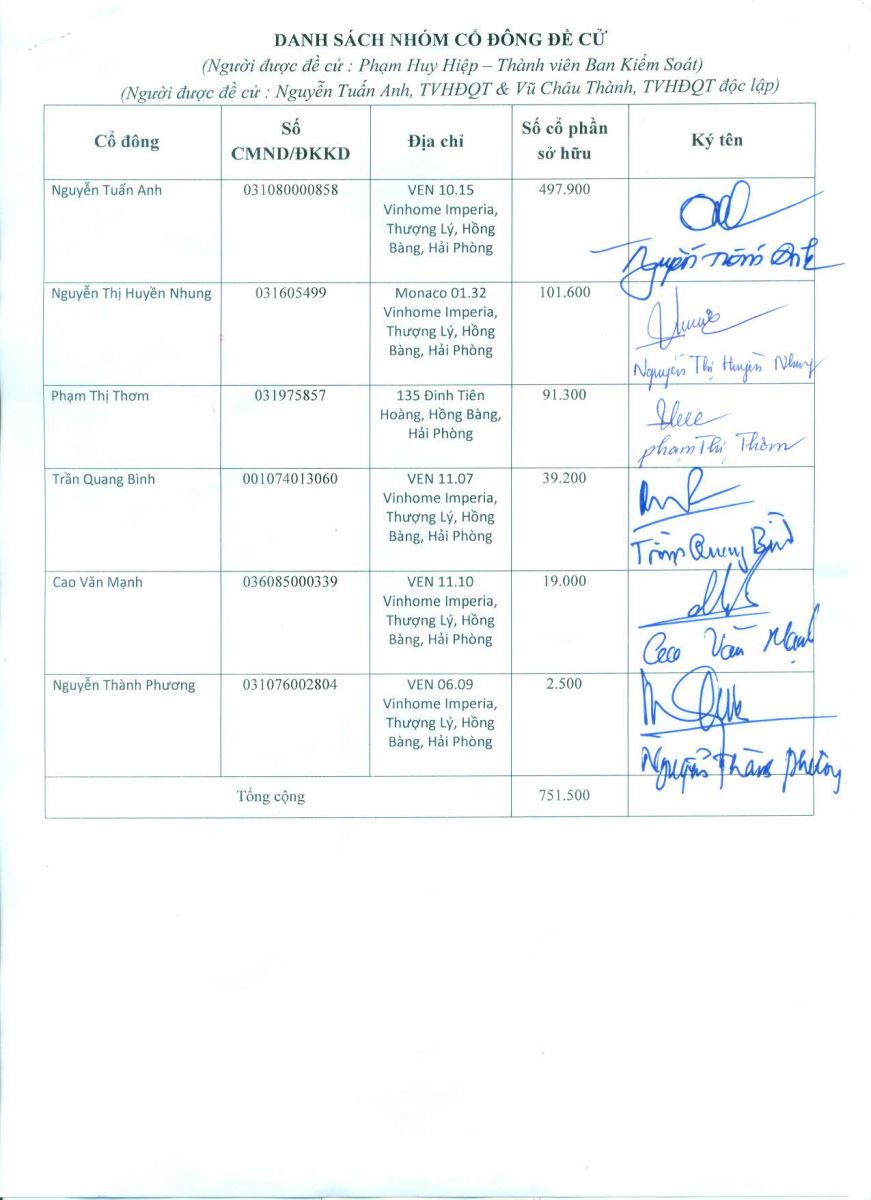 DANH SÁCH NHÓM CỔ ĐÔNG ĐỀ CỬ
(Người được đề cử : Phạm Huy Hiệp – Thành viên Ban Kiểm Soát)
(Người được đề cử : Nguyễn Tuấn Anh, TVHĐQT & Vũ Châu Thành, TVHĐQT độc lập)
Cổ đông
Số
CMND/ĐKKD
Địa chỉ
Số cổ phần
sở hữu
Ký tên
Nguyễn Tuấn Anh
031080000858
VEN 10.15
Vinhome Imperia,
Thượng Lý, Hồng
Bàng, Hải Phòng
497.900
Nguyễn Tuấn Anh
Nguyễn Thị Huyền Nhung
031605499
Monaco 01.32
Vinhome Imperia,
Thượng Lý, Hồng
Bàng, Hải Phòng
101.600
Nguyễn Thị Huyền Nhung
Phạm Thị Thơm
031975857
135 Đinh Tiên
Hoàng, Hồng Bàng,
Hải Phòng
91.300
phạm Thị Thơm
Trần Quang Bình
001074013060
VEN 11.07
Vinhome Imperia,
Thượng Lý, Hồng
Bàng, Hải Phòng
39.200
Trần Quang Bình
Cao Văn Mạnh
036085000339
VEN 11.10
Vinhome Imperia,
Thượng Lý, Hồng
Bàng, Hải Phòng
19.000
Cao Văn Mạnh
Nguyễn Thành Phương
031076002804
VEN 06.09
Vinhome Imperia,
Thượng Lý, Hồng
Bàng, Hải Phòng
2.500
Nguyễn Thành Phương
Tổng cộng
751.500